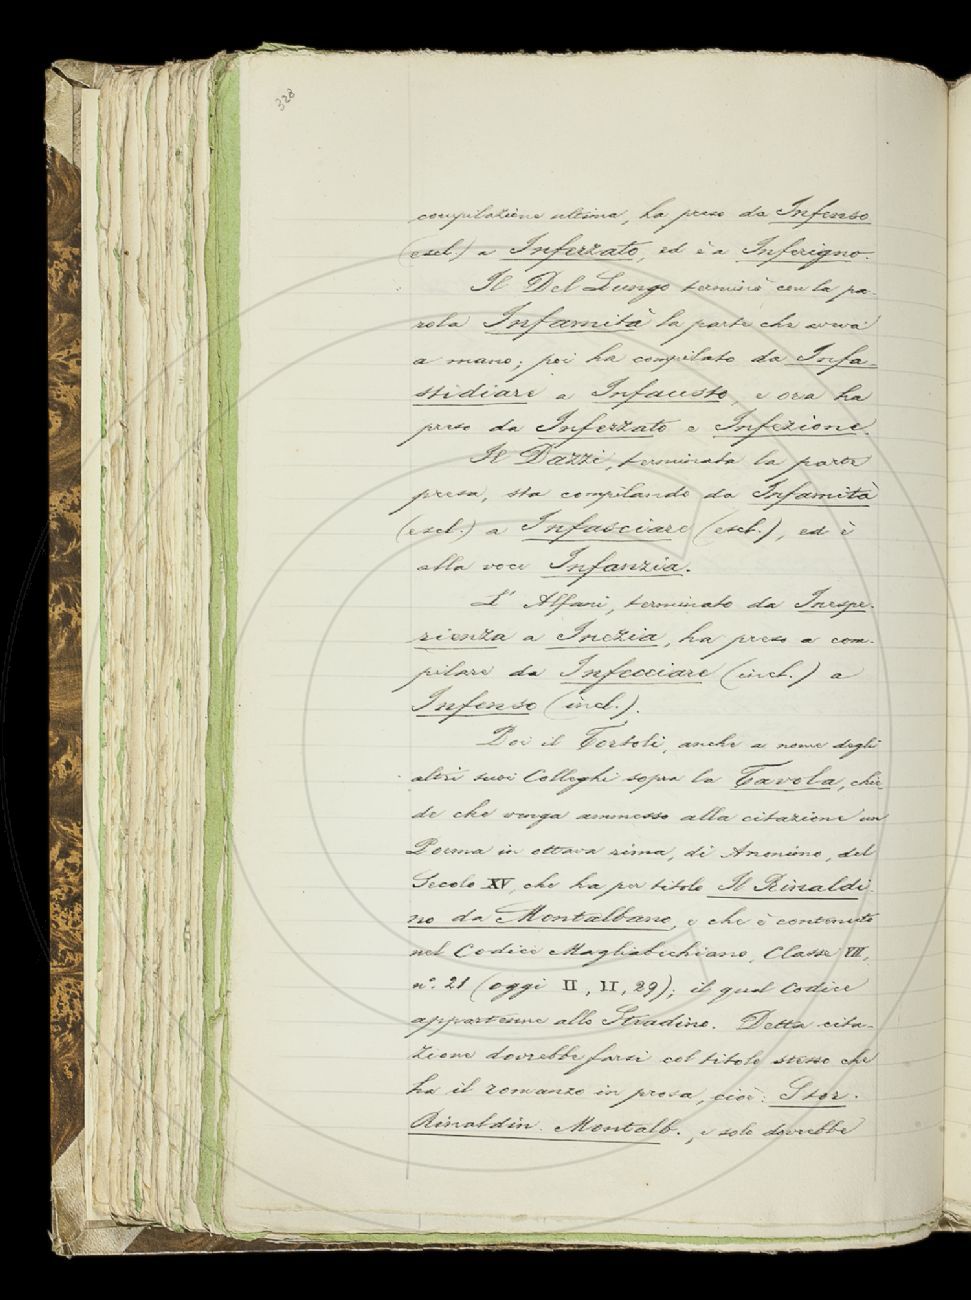 328
compilazione ultima, ha preso da Infenso
(escl.) a Inferzato, ed è a Inferigno.
Il Del Lungo terminò con la pa-
rola Infamità la parte che aveva
a mano; poi ha compilato da Infa-
stidiare a Infausto, e ora ha
preso da Inferzato a Infezione.
Il Dazzi, terminata la parte
presa, sta compilando da Infamità
(escl.) a Infasciare (escl.), ed è
alla voce Infanzia.
L' Alfani, terminato da Inespe-
rienza a Inezia, ha preso a com-
pilare da Infecciare (incl.) a
Infenso (incl.).
Poi il Tortoli, anche a nome degli
altri suoi Colleghi sopra la Tavola, chie-
de che venga ammesso alla citazione un
Poema in ottava rima, di Anonimo, del
Secolo XV, che ha per titolo Il Rinaldi-
no da Montalbano, e che è contenuto
nel Codice Magliabechiano, Classe VII,
n.° 21 (oggi II, II, 29); il qual Codice
appartenne allo Stradino. Detta cita-
zione dovrebbe farsi col titolo stesso che
ha il romanzo in prosa, cioè: Stor.
Rinaldin. Montalb., e solo dovrebbe